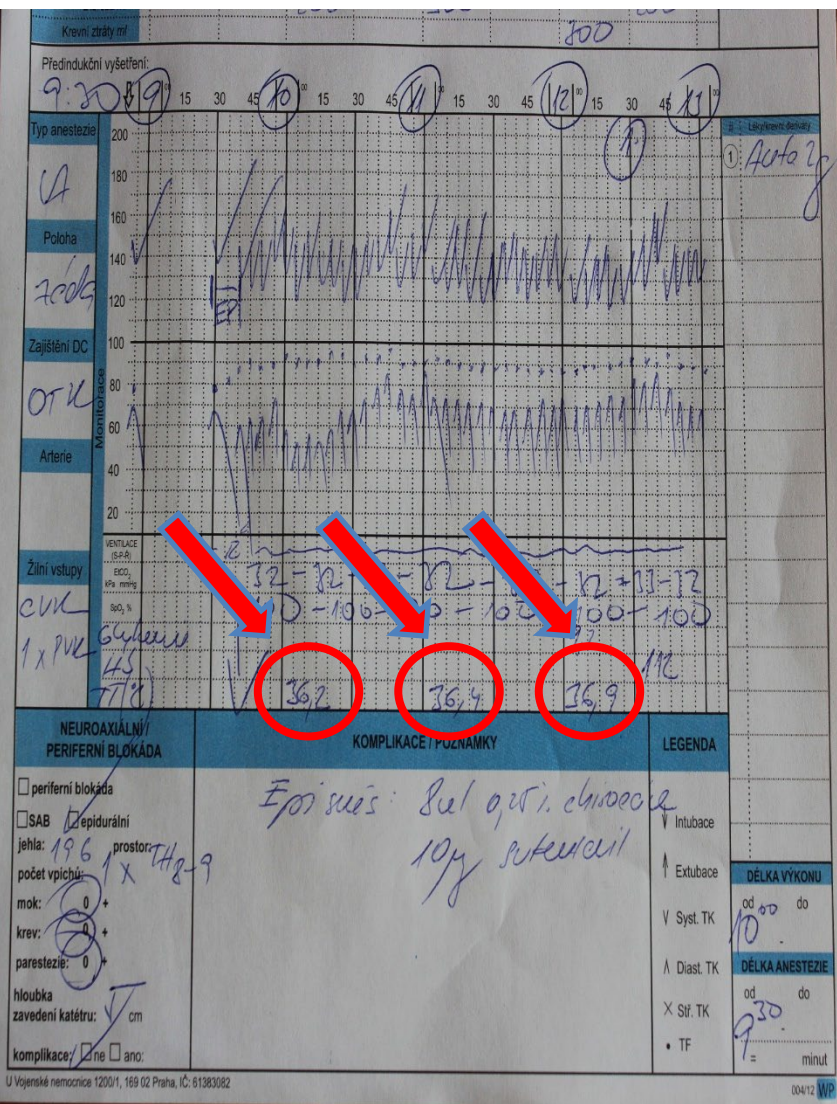 Krevní ztráty ml
300
Předindukční vyšetření:
9:30 9 00 15 30 45 10 00 15 30 45 11 15 30 45 12 00 15 30 45 13 00
Typ anestezie
VA
Poloha
záda
Zajištění DC
OTK
Arterie
Žilní vstupy
CVK
1 x PVK
Monitorace
200
180
160
140
120
100
80
60
40
20
EP
VENTILACE
(S-P-Ř)
EtCO2
kPa mmHg
32 - 32 - 32 - 32 - 33 - 32
SpO2 %
100 - 100 - 100 - 100 - 100
Glykemie
112
TT(°C)
36,2 36,4 36,9
Léky/krevní deriváty
1
2g
NEUROAXIÁLNÍ/
PERIFERNÍ BLOKÁDA
periferní blokáda
SAB epidurální
jehla: 19G prostor: Th8-9
počet vpichů: 1x
mok: 0 +
krev: 0 +
parestezie: 0 +
hloubka
zavedení katétru: cm
komplikace: ne ano:
KOMPLIKACE / POZNÁMKY
Epi směs: 8ml 0,25%
10µg sufentanil
LEGENDA
Intubace
Extubace
V Syst. TK
Λ Diast. TK
× Stř. TK
• TF
DÉLKA VÝKONU
od do
10 00
DÉLKA ANESTEZIE
od do
9 30
= minut
U Vojenské nemocnice 1200/1, 169 02 Praha, IČ: 61383082
004/12 WP